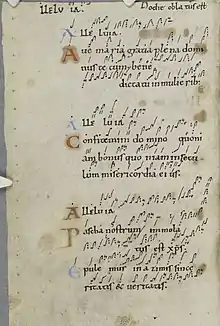 llelu ia. Hodie oblatus est
A lle luia
A ue maria gratia plena domi
nus te cum bene
dicta in mulieribꝰ
A lle lu ia
C onfitemini domino quoni
am bonus quo niam in secu
lum misericordia ei us.
A lleluia
P ascha nostrum immola
tus est xp̄s
E pule mur in a zimis since
ritatis & ueritatis.